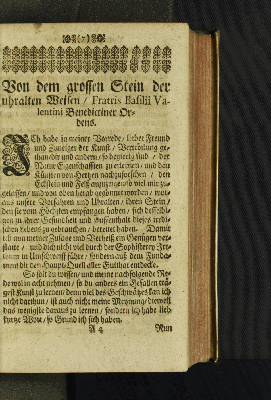 (7)
Von dem grossen Stein der
uhralten Weisen / Fratris Basilii Va-
lentini Benedictiner Or-
dens.
ICh habe in meiner Vorrede / lieber Freund
und Zuneiger der Kunst / Vertröstung ge-
than dir und andern / so begierig sind / der
Natur Eigenschafften zu erlernen / und den
Künsten von Hertzen nachzuforschen / den
Eckstein und Felß anzuzeigen / so viel mir zu-
gelassen / und von oben herab gegönnet worden / wor-
aus unsere Vorfahren und Uhralten / ihren Stein /
den sie vom Höchsten empfangen haben / sich desselbi-
gen zu ihrer Gesundheit und Auffenthalt dieses irrdi-
schen Lebens zu gebrauchen / bereitet haben. Damit
ich nun meiner Zusage und Verheiß ein Genügen ver-
statte / und dich nicht viel durch der Sophisterey Irr-
thum in Umschweiff führe / sondern auß dem Funda-
ment dir den Haupt-Quell aller Fruchtbarkeit entdecke.
So solt du wissen / und meine nachfolgende Re-
de wol in acht nehmen / so du anders ein Gefallen trä-
gest Kunst zu lernen / denn viel des Geschwätzes kan ich
nicht darthun / ist auch nicht meine Meynung / dieweil
das wenigste daraus zu lernen / sondern ich habe lieb
kurtze Wort / so Grund in sich haben.
A 4 Nun